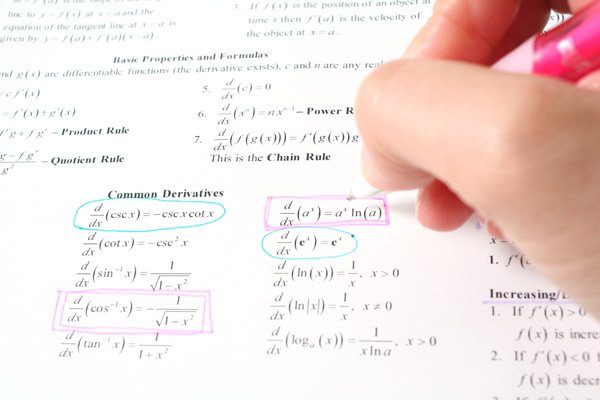 line to y = f(x) at x = a and the
equation of the tangent line at x = a is
given by y = f(a) + f'(a)(x − a)
3. If f(x) is the position of an object at
time x then f'(a) is the velocity of
the object at x = a.
Basic Properties and Formulas
g(x) are differentiable functions (the derivative exists), c and n are any real
= c f'(x)
= f'(x) ± g'(x)
f'g + f g' – Product Rule
– Quotient Rule
5. d/dx (c) = 0
6. d/dx (xⁿ) = n xⁿ⁻¹ – Power R
7. d/dx (f(g(x))) = f'(g(x)) g
This is the Chain Rule
Common Derivatives
d/dx (csc x) = −csc x cot x
d/dx (cot x) = −csc² x
d/dx (sin⁻¹ x) = 1/√(1−x²)
d/dx (cos⁻¹ x) = −1/√(1−x²)
d/dx (tan⁻¹ x) = 1/(1+x²)
d/dx (aˣ) = aˣ ln(a)
d/dx (eˣ) = eˣ
d/dx (ln(x)) = 1/x, x > 0
d/dx (ln|x|) = 1/x, x ≠ 0
d/dx (logₐ(x)) = 1/(x ln a), x > 0
1. f'(
Increasing/
1. If f'(x) > 0
f(x) is incre
2. If f'(x) < 0 f
f(x) is decr